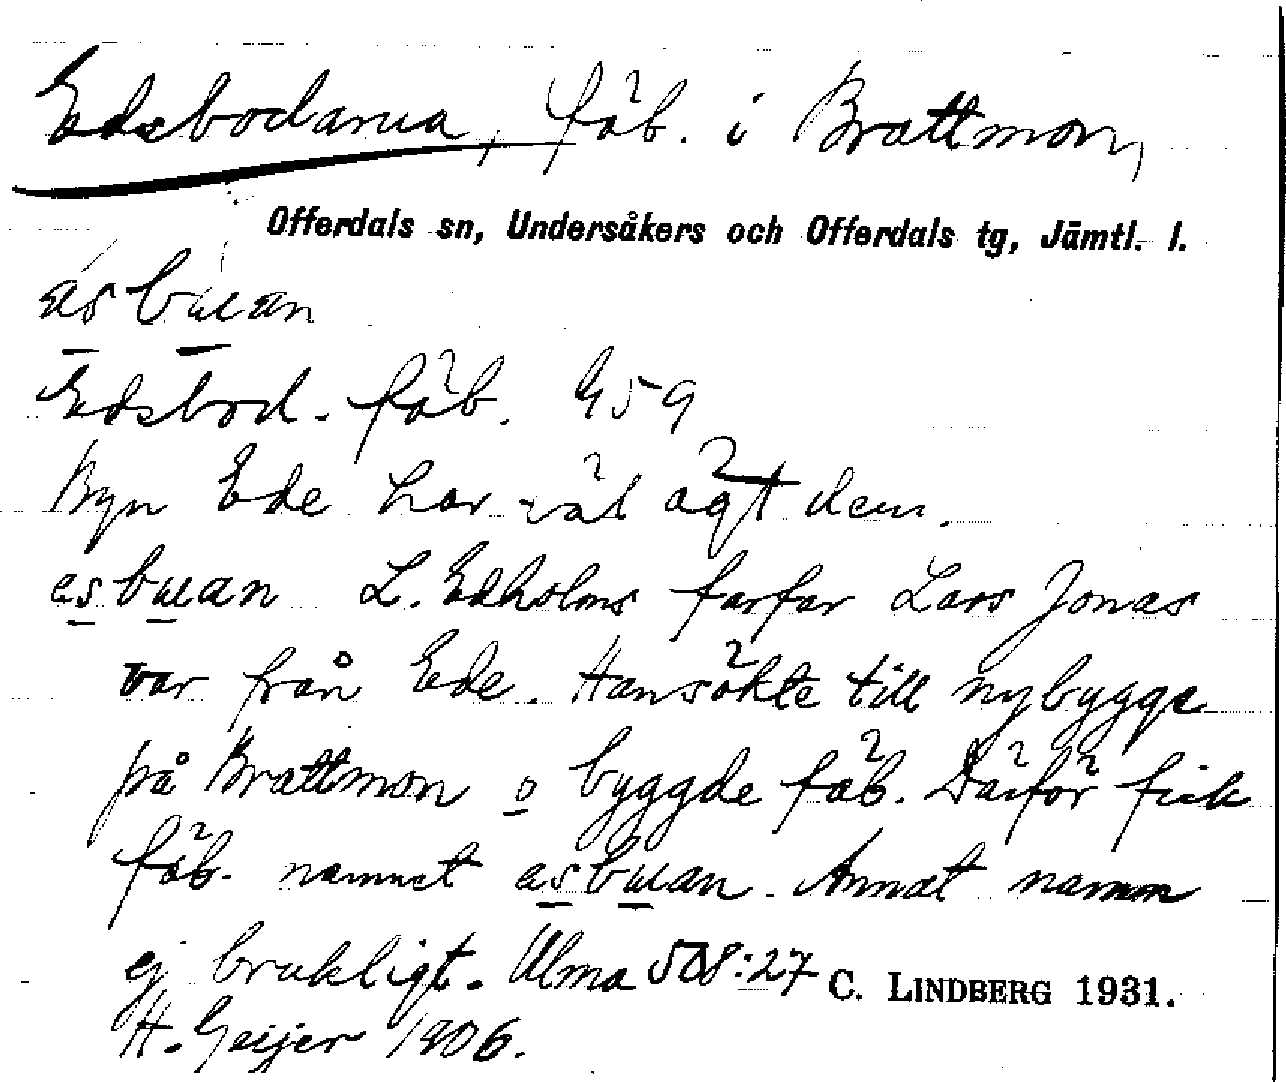 Edsbodarna, fäb. i Brattmon,
Offerdals sn, Undersåkers och Offerdals tg, Jämtl. l.
äsbuan
Edsbod. fäb. G59
Byn Ede har väl ägt dem.
esbuan L. Edholms farfar Lars Jonas
var från Ede. Han sökte till nybygge
på Brattmon o byggde fäb. Därför fick
fäb. namnet esbuan. Annat namn
ej brukligt. Ulma 508:27 C. LINDBERG 1931.
H. Geijer 1906.